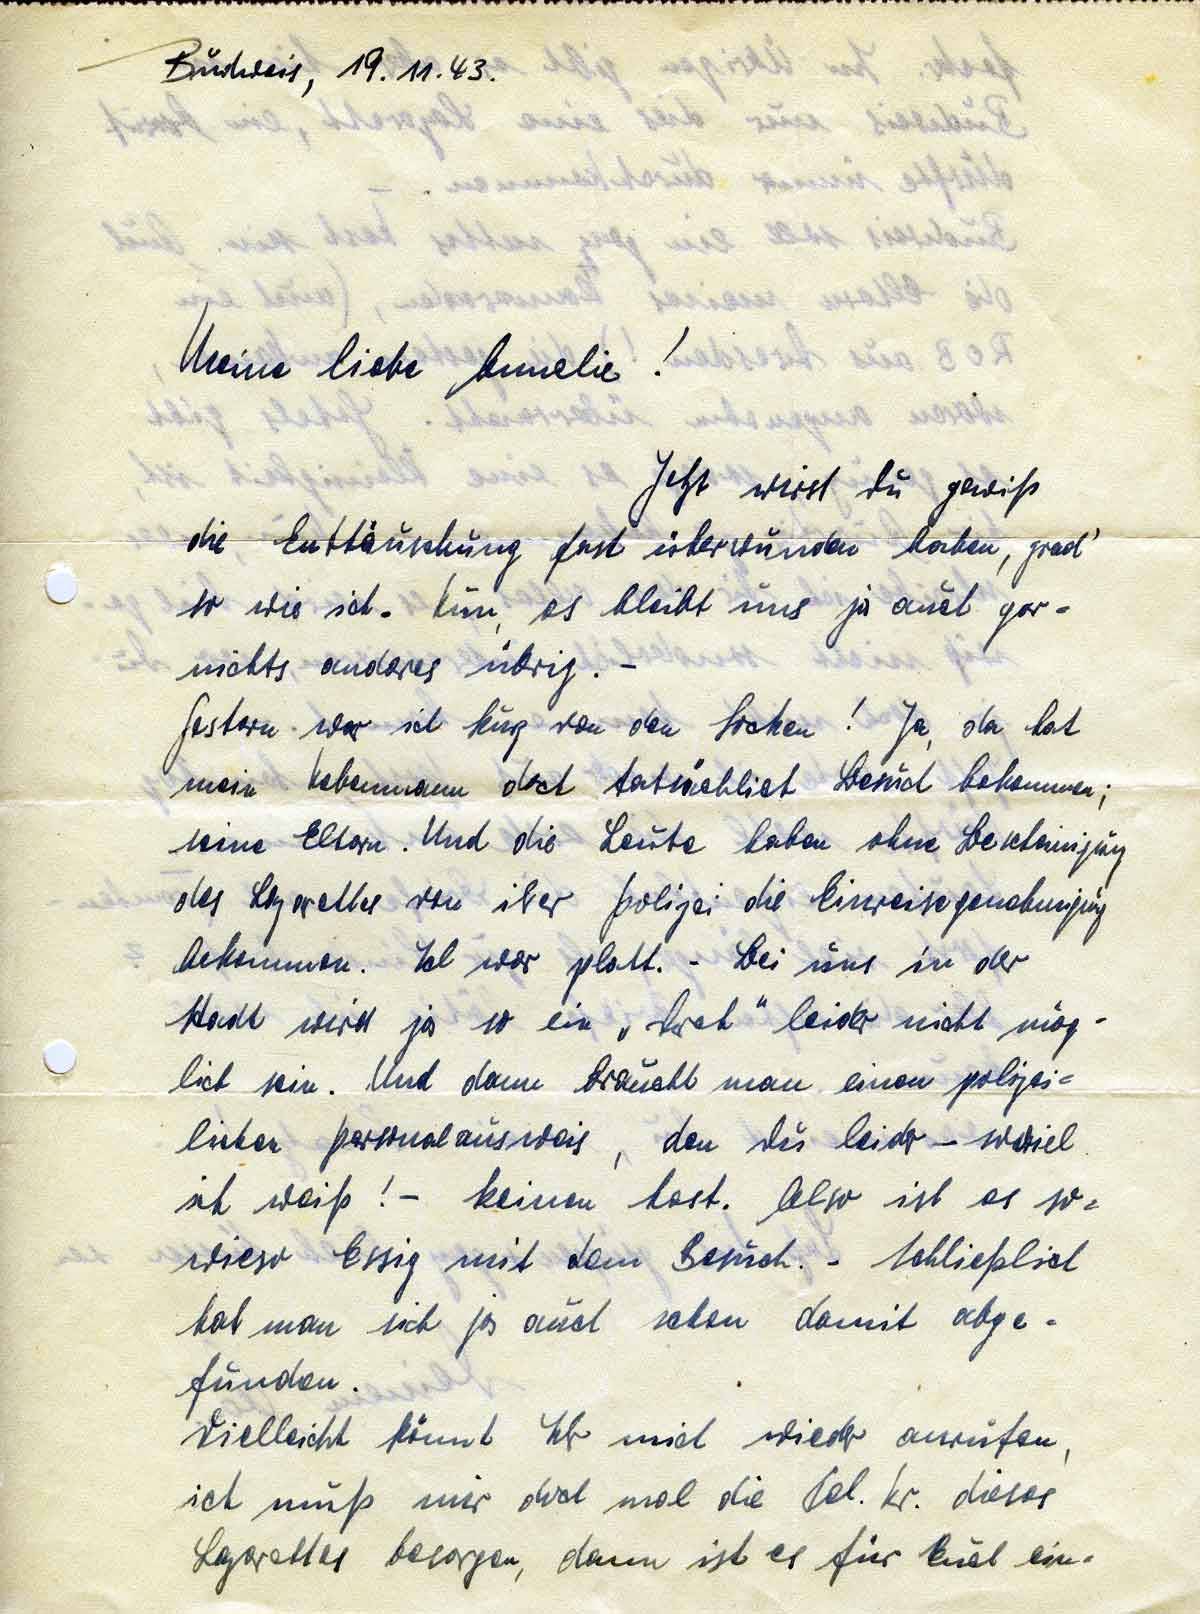 Budweis, 19.11.43.
Meine liebe Annelie!
Jetzt wirst Du gewiß
die Enttäuschung fast überwunden haben, grad'
so wie ich. Nun, es bleibt uns ja auch gar-
nichts anderes übrig. -
Gestern war ich kurz von den Socken! Ja, da hat
mein Nebenmann doch tatsächlich Besuch bekommen;
seine Eltern. Und die Leute haben ohne Bescheinigung
des Lazarettes von ihrer Polizei die Einreisegenehmigung
bekommen. Ich war platt. - Bei uns in der
Stadt wird ja so ein „Dreh" leider nicht mög-
lich sein. Und dann braucht man einen polizei-
lichen Personalausweis, den Du leider - soviel
ich weiß! - keinen hast. Also ist es so-
wieso Essig mit dem Besuch. - Schließlich
hat man sich ja auch schon damit abge-
funden.
Vielleicht könnt Ihr mich wieder anrufen,
ich muß mir doch mal die Tel. Nr. dieses
Lazarettes besorgen, dann ist es für Euch ein-